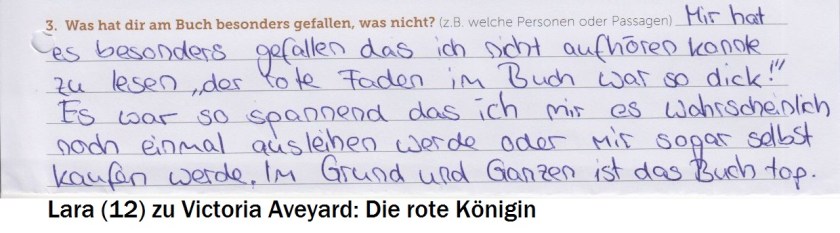 3. Was hat dir am Buch besonders gefallen, was nicht? (z.B. welche Personen oder Passagen) Mir hat
es besonders gefallen das ich nicht aufhören konnte
zu lesen „der rote Faden im Buch war so dick!"
Es war so spannend das ich mir es wahrscheinlich
noch einmal ausleihen werde oder mir sogar selbst
kaufen werde. Im Grund und Ganzen ist das Buch top.
Lara (12) zu Victoria Aveyard: Die rote Königin